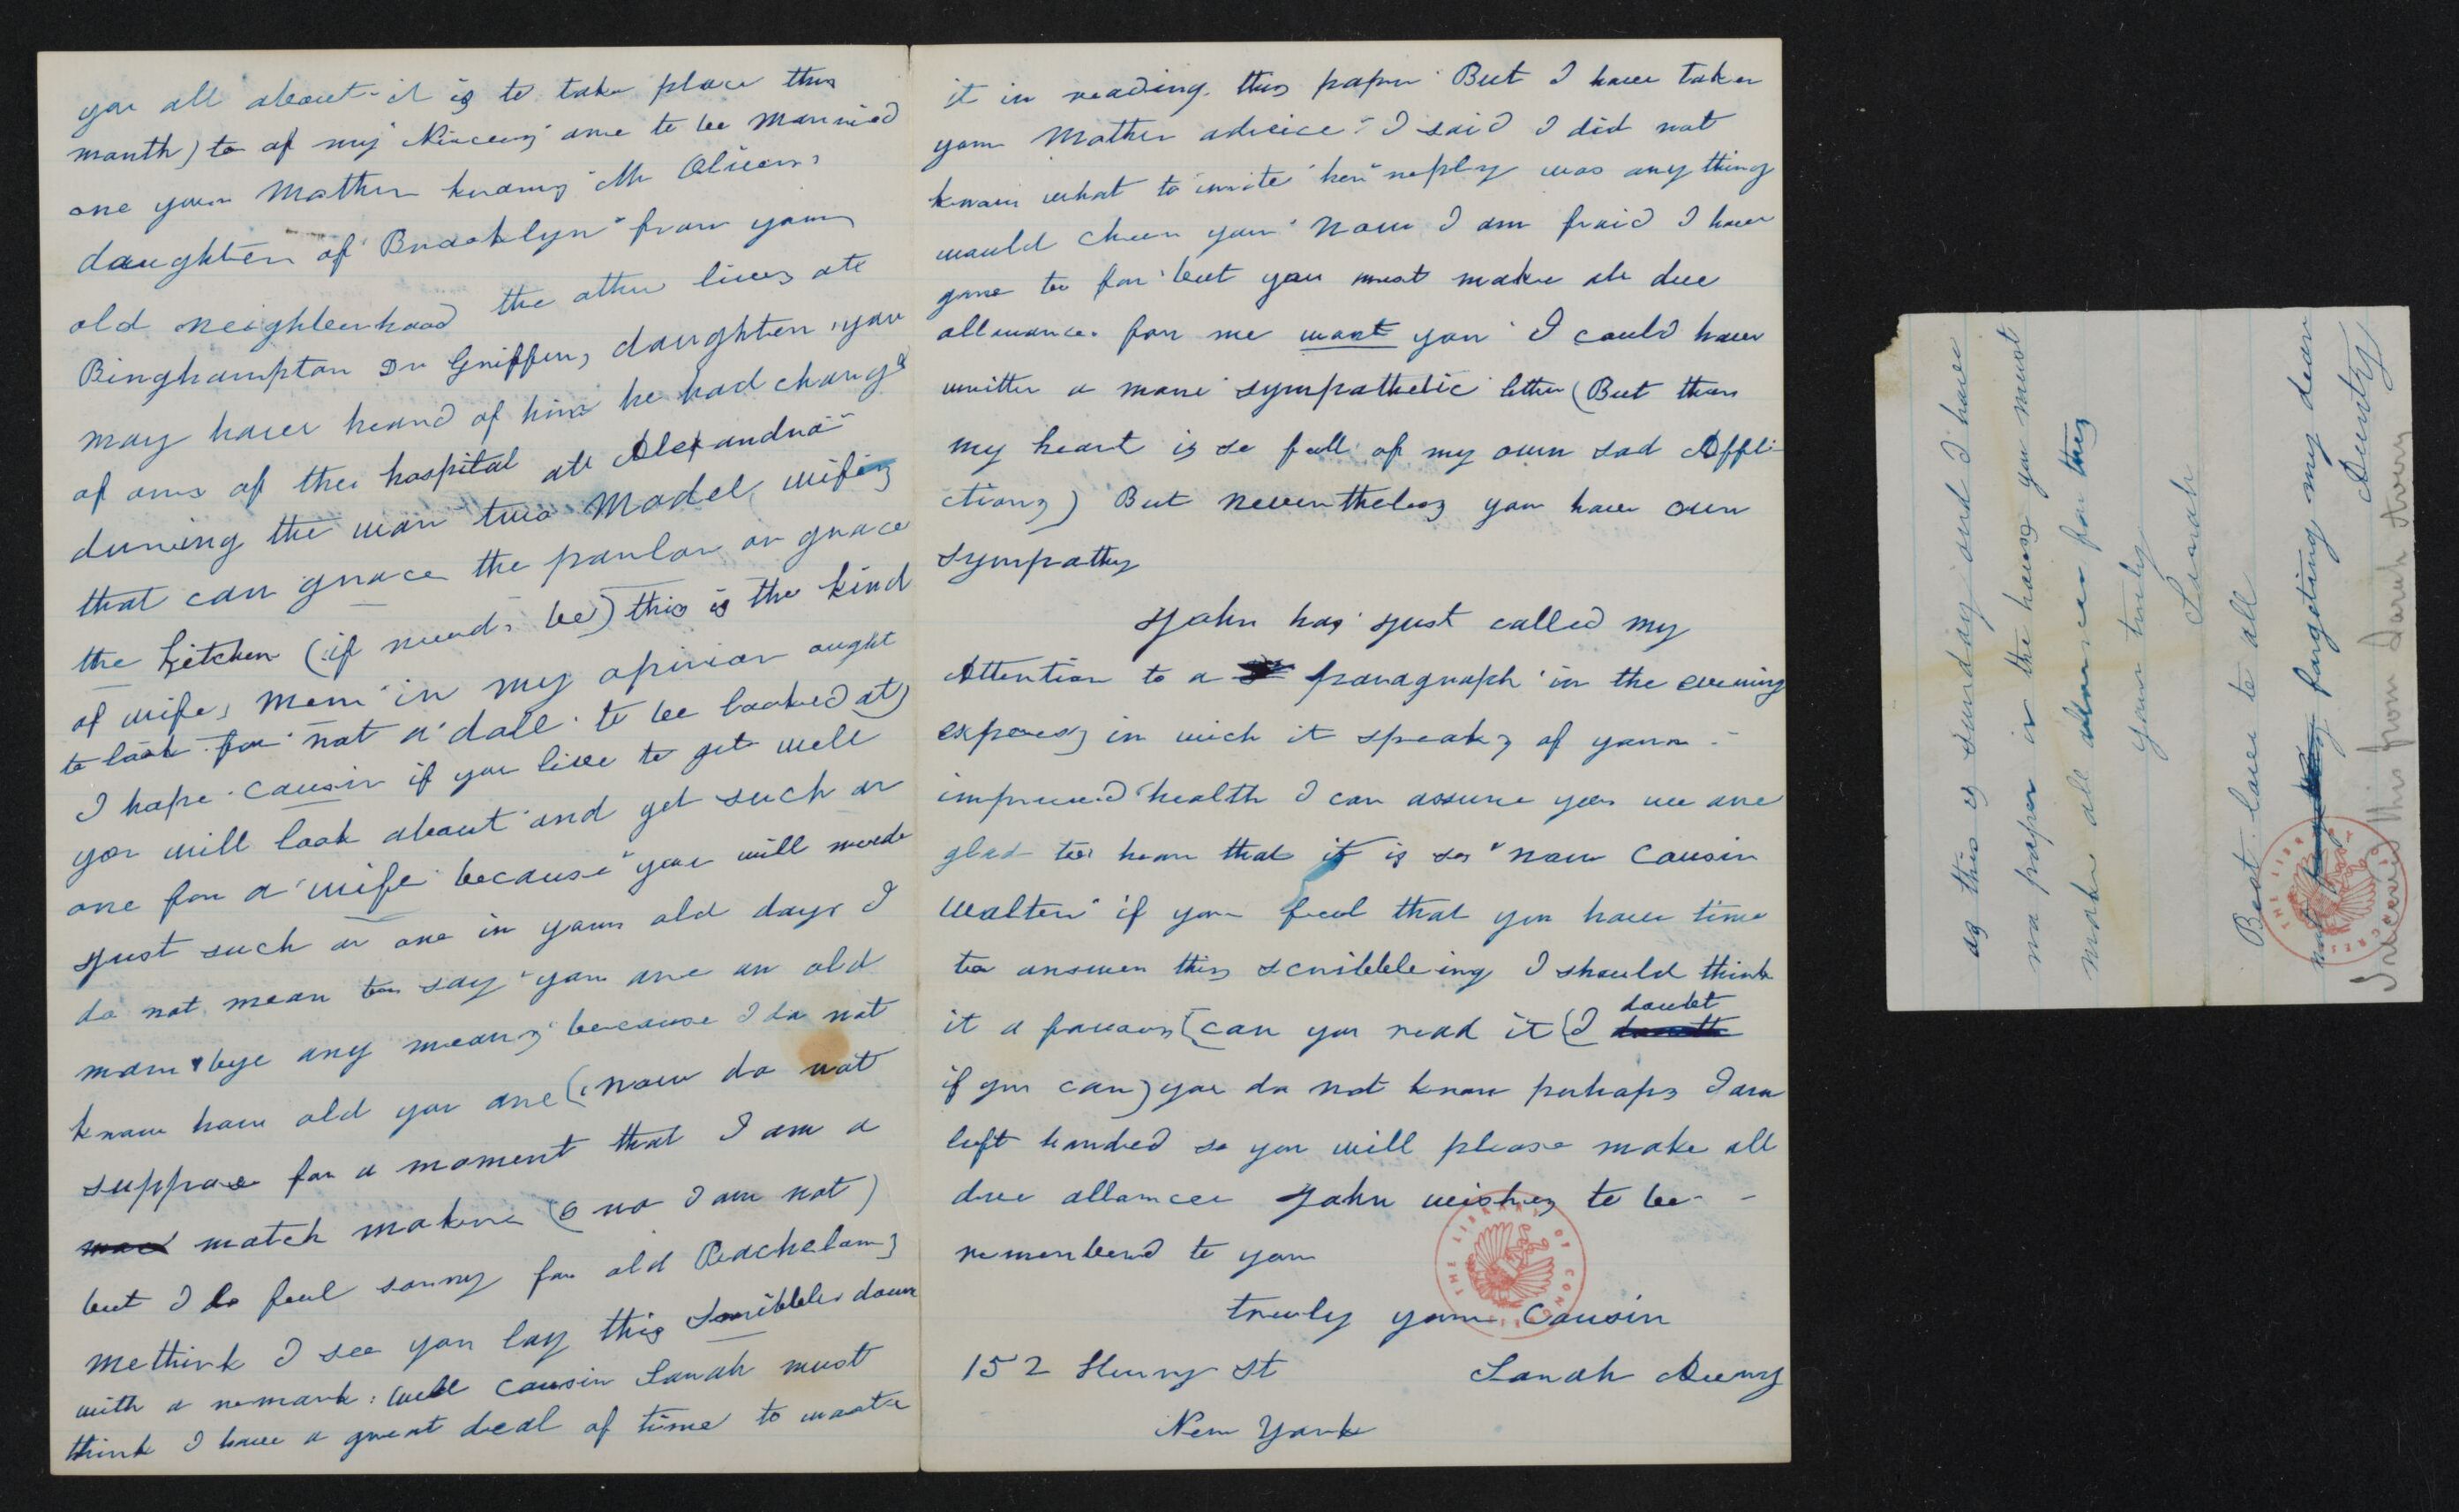 you all about it is to take place this
month) to of my Nieceing are to be married
one your Mother knows Mr Olivers
daughter of Brooklyn from your
old neighberhood the other lives att
Binghampton Dr Griffins daughter you
may have heard of him he had charge
of ours of thee hospital att Alexandria
dureing the war two Model wifes
that can grace the parlor or grace
the kitchen (if needs be) this is the kind
of wifes men in my opinion ought
to look for not a doll to be looked at)
I hope cousin if you live to get well
you will look about and get such an
one for a wife because you will neede
just such an one in your old days I
do not mean too say your are an old
man bye any means because I do not
know how old you are (now do not
suppose for a moment that I am a
match maker (o no I am not)
but I do feel sorrry for old Bachelors
methink I see you lay this scribble down
with a remark: well cousin Sarah must
think I have a great deal of time to waste
it in reading this paper But I have taken
your Mother advice I said I did not
know what to write her reply was any thing
would cheer you now I am fraid I have
gone to far but you must make all due
allowance for me wont you I could have
written a more sympathetic letter (But then
my heart is so full of my own sad Affli-
ctions) But nevertheless you have our
sympathy
John has just called my
Attention to a paragraph in the evening
express in wich it speaks of your
improved health I can assure you we are
glad too hear that it is so now Cousin
Walter if you feel that you have time
too answer this scribbleing I should think
it a favour (can you read it (I doubt
if you can) you do not know perhaps I am
left handed so you will please make all
due allowance John wishes to be
remembered to you
truly your Cousin
152 Henry St Sarah Avery
New York
as this is sunday and I have
no paper in the house you must
make all alowances for this
yours truly
Sarah
Best love to all
not forgeting my dear
Aunty
I received this from Sarah Avery
THE LIBRARY OF CONGRESS
THE LIBRARY OF CONGRESS